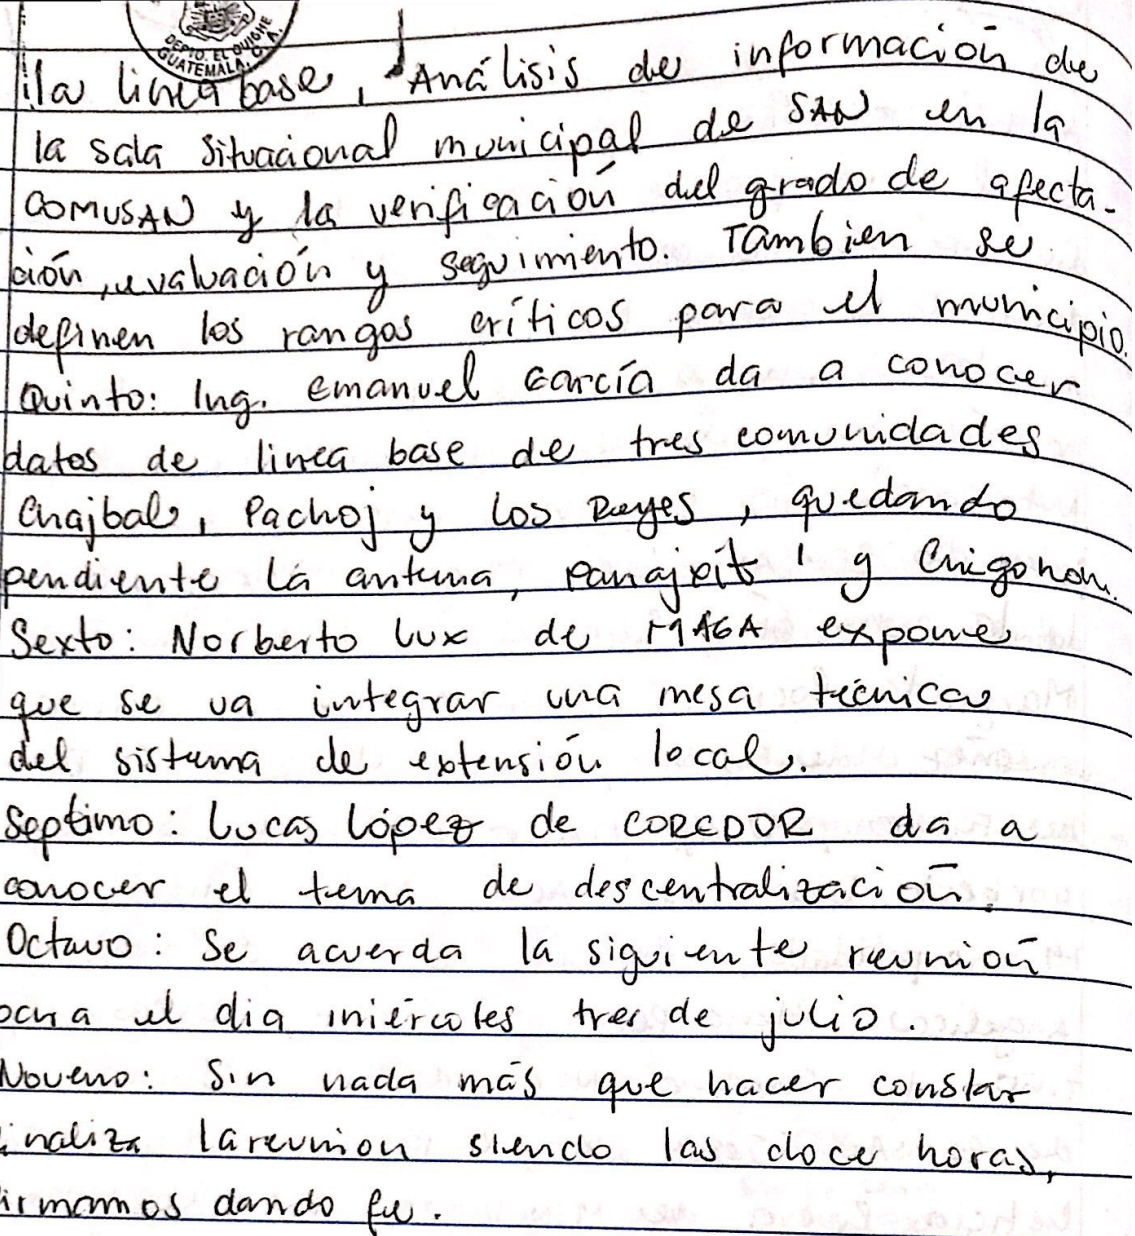 DEPTO. EL QUICHE
GUATEMALA, C. A.
la linea base, Análisis de información de
la sala situacional municipal de SAN en la
COMUSAN y la verificación del grado de afecta-
ción, evaluación y seguimiento. Tambien se
definen los rangos críticos para el municipio.
Quinto: Ing. Emanuel García da a conocer
datos de linea base de tres comunidades
Chajbal, Pachoj y Los Reyes, quedando
pendiente La antena, y
Sexto: Norberto Lux de MAGA expone
que se va integrar una mesa técnica
del sistema de extensión local.
Septimo: Lucas López de COREDOR da a
conocer el tema de descentralización.
Octavo: Se acuerda la siguiente reunión
para el dia miércoles tres de julio.
Noveno: Sin nada más que hacer constar
inaliza la reunion siendo las doce horas,
irmamos dando fe.